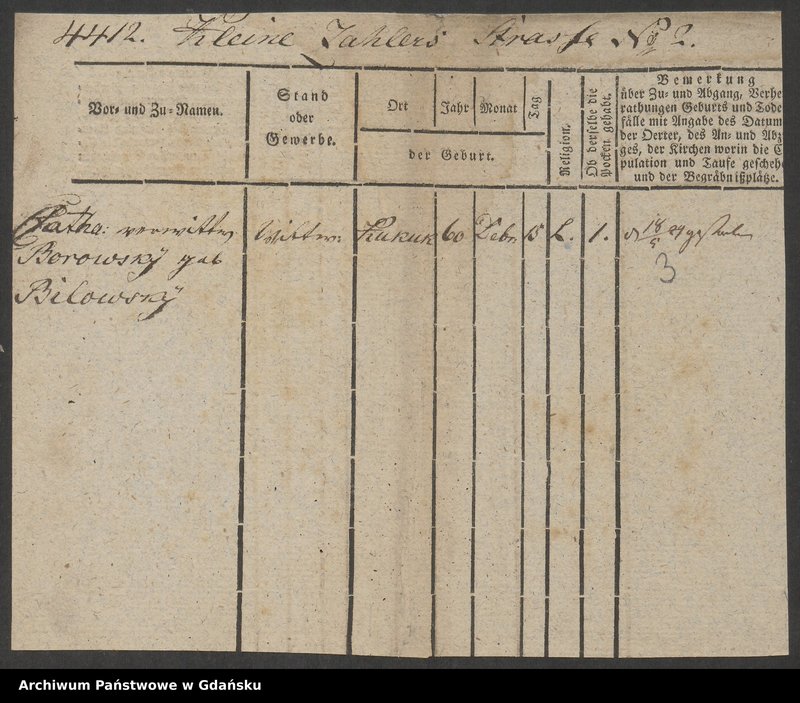 4412. Kleine Zahlers Strasse No 2.
Vor- und Zu-Namen.
Stand
oder
Gewerbe.
Ort
Jahr
Monat
Tag
der Geburt.
Religion.
Ob derselbe die
Pocken gehabt.
Bemerkung
über Zu- und Abgang, Verhe
rathungen Geburts und Tode
fälle mit Angabe des Datum
der Oerter, des An- und Abz
ges, der Kirchen worin die C
pulation und Taufe gescheh
und der Begräbnißplätze.
Catha: verwittw
Borowsky geb
Bilowsky
Wittw:
Kukuk
60
Debr
15
L.
1.
d 18/5 24 gestorben
3
Archiwum Państwowe w Gdańsku